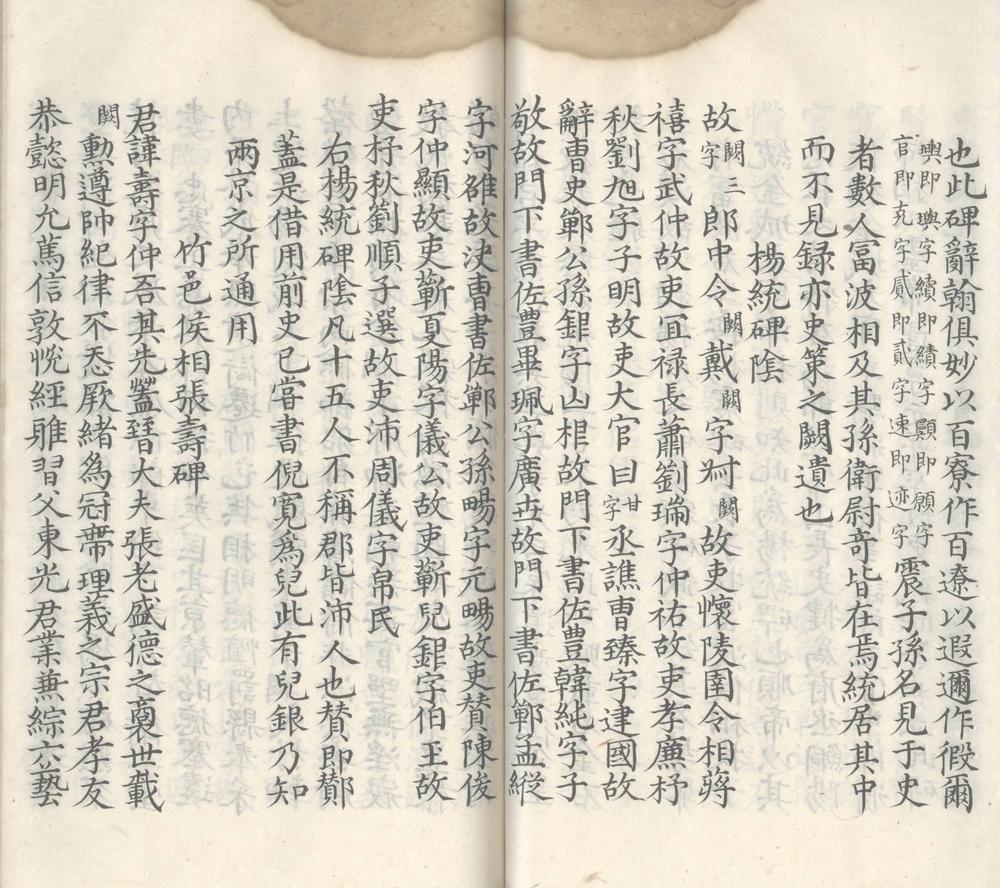 也此碑辭翰俱妙以百寮作百遼以遐邇作假爾
輿即輿字纘即纘字顠即願字
官即克字貳即貳字速即迹字
震子孫名見于史
者數人富波相及其孫衛尉奇皆在焉統居其中
而不見録亦史策之闕遺也
楊統碑陰
故闕三字郎中令闕戴闕字闕故吏懷陵圉令相蔣
禧字武仲故吏冝禄長蕭劉瑞字仲祐故吏孝廉杼
秋劉旭字子明故吏大官曰甘字丞譙曹臻字建國故
辭曹史鄲公孫銀字山根故門下書佐豊韓純字子
敬故門下書佐豊畢珮字廣世故門下書佐鄲孟縱
字河雒故決曹書佐鄲公孫暢字元暢故吏贊陳俊
字仲顯故吏蘄夏陽字儀公故吏蘄兒銀字伯玉故
吏杼秋劉順子選故吏沛周儀字帛民
右楊統碑陰凡十五人不稱郡皆沛人也贊即酇
蓋是借用前史已嘗書倪寛為兒此有兒銀乃知
兩京之所通用
竹邑侯相張壽碑
君諱壽字仲吾其先蓋晉大夫張老盛德之裔世載
闕勲遵帥紀律不忝厥緒為冠帶理義之宗君孝友
恭懿明允篤信敦悅經雅習父東光君業兼綜六藝